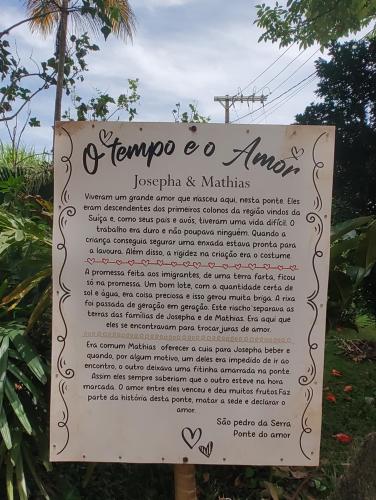 O tempo e o Amor
Josepha & Mathias
Viveram um grande amor que nasceu aqui, nesta ponte. Eles
eram descendentes dos primeiros colonos da região vindos da
Suíça e, como seus pais e avós, tiveram uma vida difícil. O
trabalho era duro e não poupava ninguém. Quando a
criança conseguia segurar uma enxada estava pronta para
a lavoura. Além disso, a rigidez na criação era o costume.
A promessa feita aos imigrantes, de uma terra farta, ficou
só na promessa. Um bom lote, com a quantidade certa de
sol e água, era coisa preciosa e isso gerou muita briga. A rixa
foi passada de geração em geração. Este riacho separava as
terras das famílias de Josepha e de Mathias. Era aqui que
eles se encontravam para trocar juras de amor.
Era comum Mathias oferecer a cuia para Josepha beber e
quando, por algum motivo, um deles era impedido de ir ao
encontro, o outro deixava uma fitinha amarrada na ponte.
Assim eles sempre saberiam que o outro esteve na hora
marcada. O amor entre eles venceu e deu muitos frutos.Faz
parte da história desta ponte, matar a sede e declarar o
amor.
São pedro da Serra
Ponte do amor